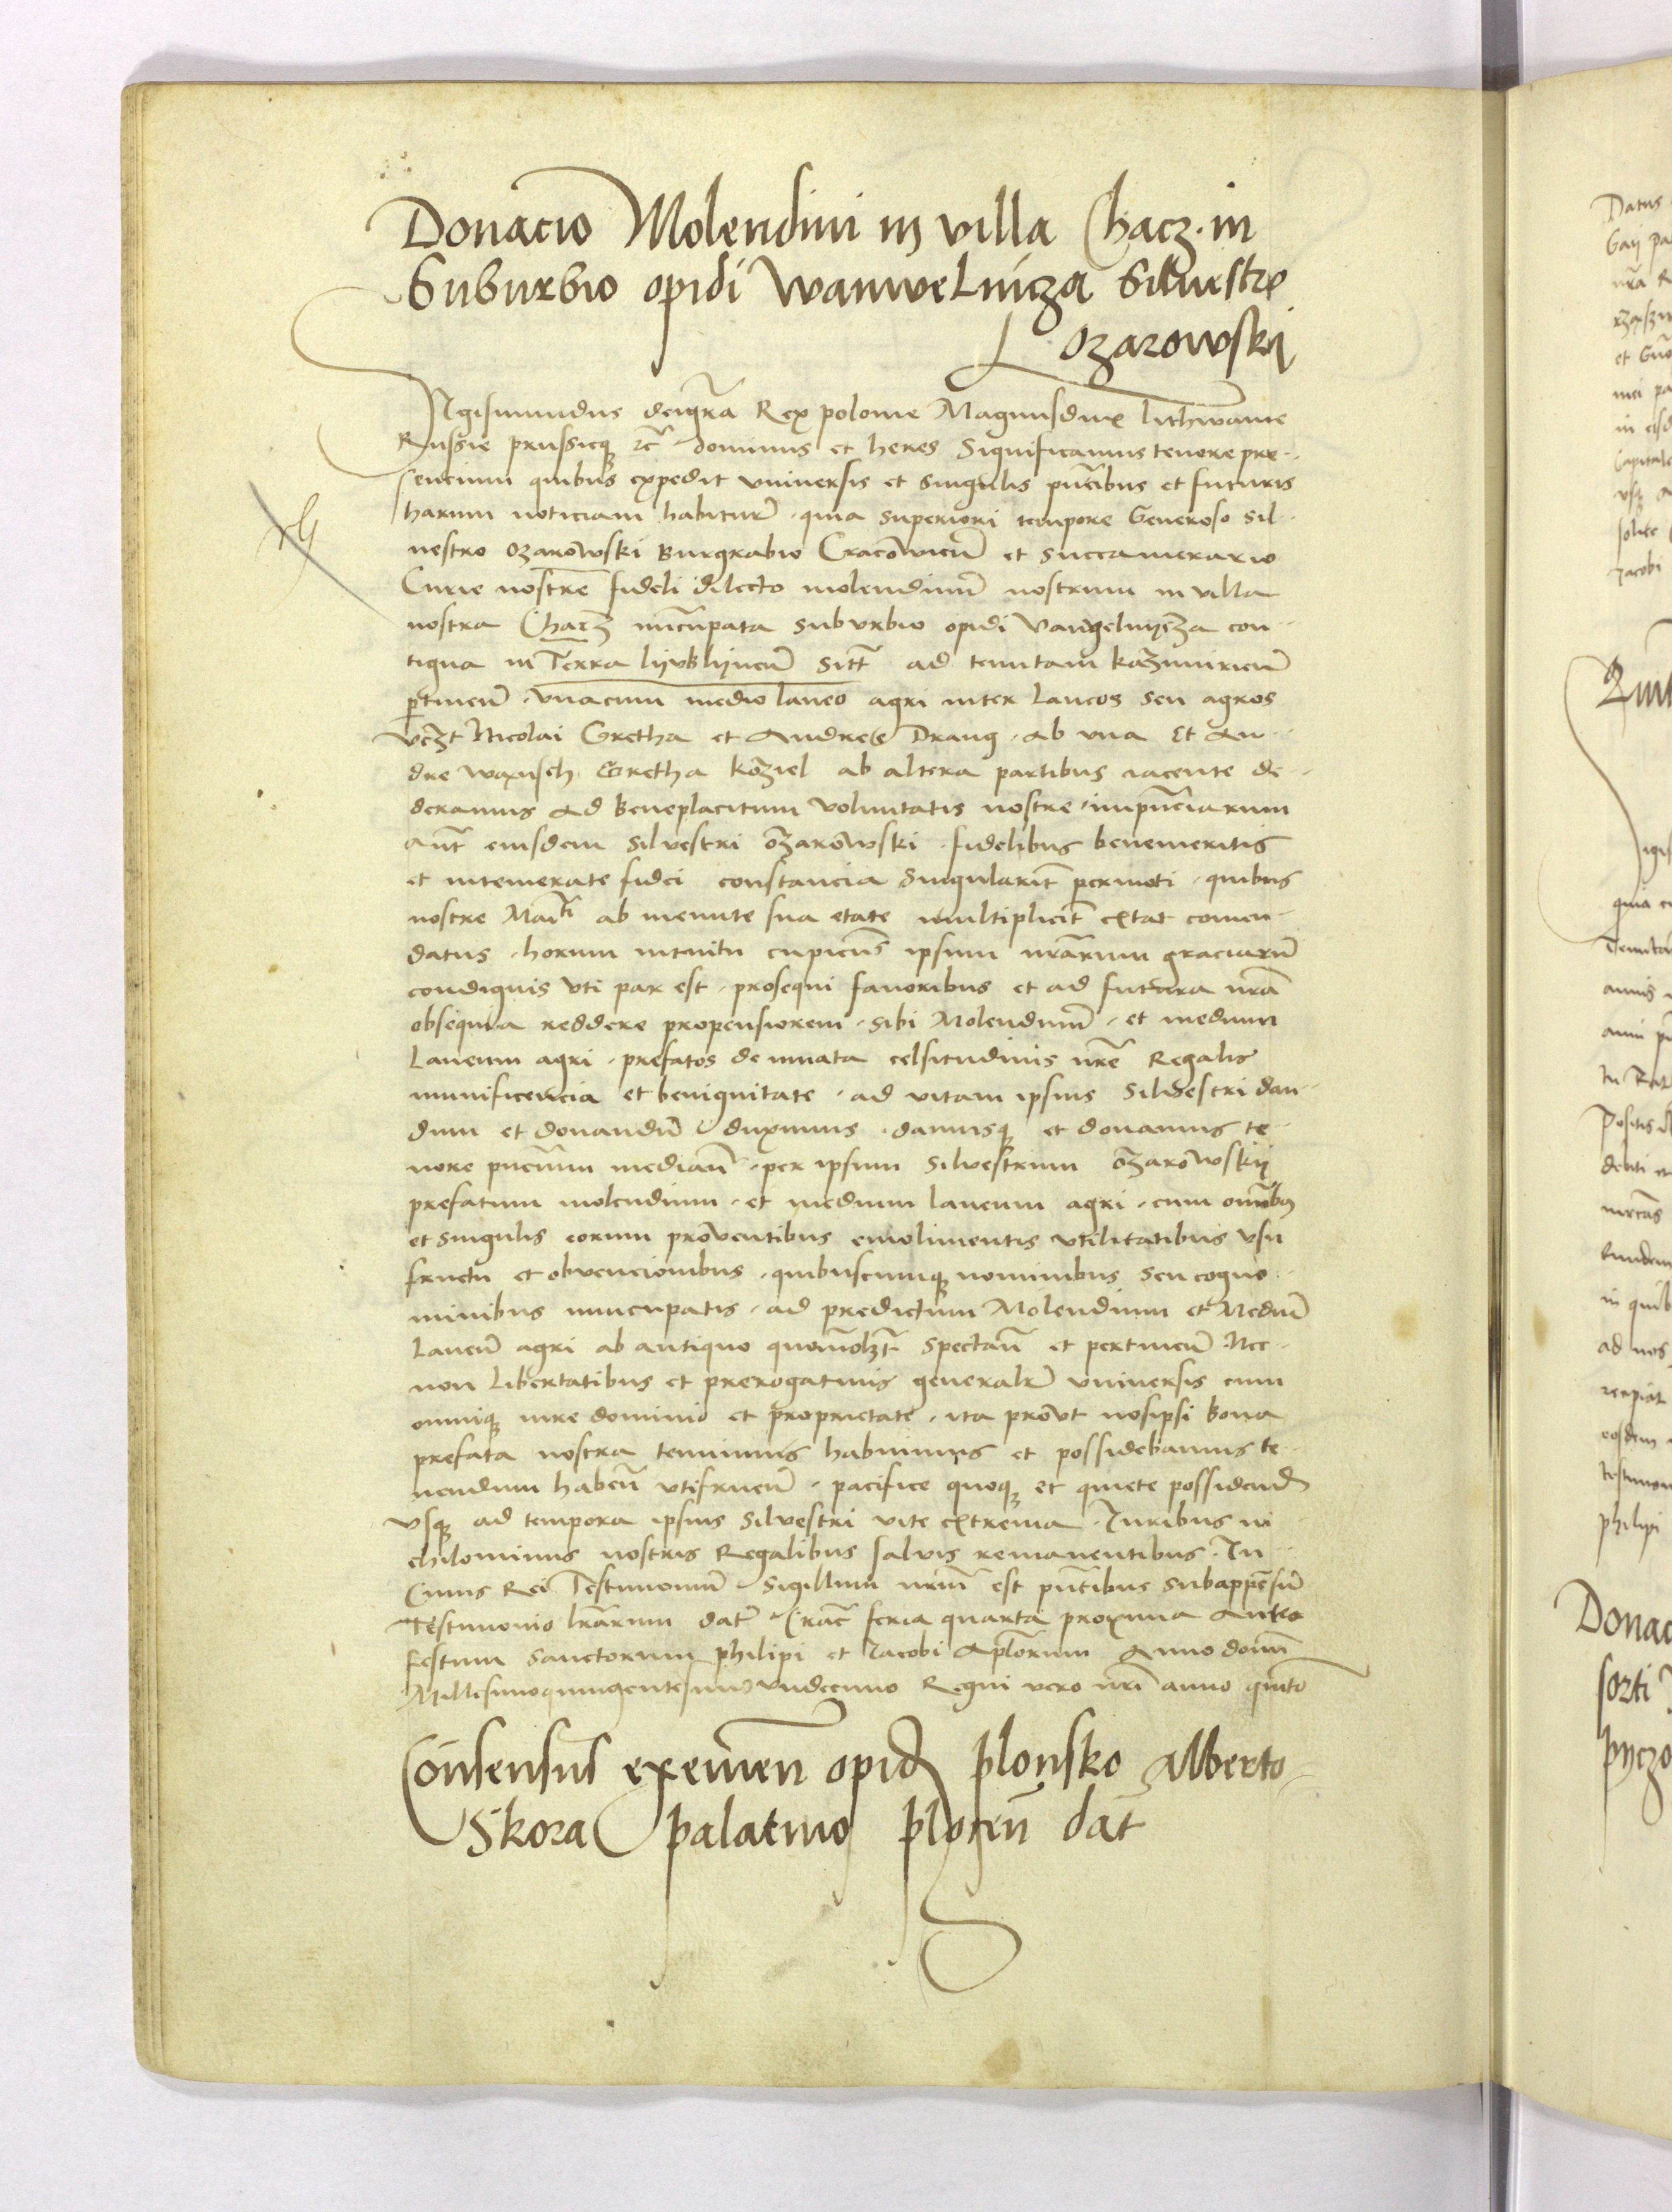 Donacio Molendini in villa Chacz in
Suburbio opidi Wanwelnicza Silvestro
Ozarowskij
Sigismundus dei gr̃a Rex polonie Magnusdux lithwanie
Russie prussieq́ꝫ ⁊c̃ dominus et heres Significamus tenore pre-
sencium quibus expedit vniversis et singulis pñtibus et futuris
harum noticiam habitur̃ quia superiori tempore Generoso Sil-
uestro Ozarowski Burgrabio Cracovieñ et succamerario
Curie nostre fideli dilecto molendinũ nostrum in villa
nostra Chacz nũcupata suburbio opidi Vangelnycza con-
tigua in Terra lyvblyneñ sitt̃ ad tenutam kazimirieñ
ptineñ vnacum medio laneo agri inter laneos seu agros
vcʒt Nicolai Gretha et Andree Drang ab vna Et An-
dre waxusch Gretha koziel ab altera partibus iacente de-
deramus ad beneplacitum voluntatis nostre inpñciarum
aut̃ eiusdem Silvestri Ozarowski fidelibus benemeritis
et intemerate fidei constancia singularit̃ permoti quibus
nostre Maiti ab inevnte sua etate multiplicit̃ extat comen-
datus horum intuitu cupieñs ipsum nr̃arum graciarũ
condignis vti par est prosequi favoribus et ad futura nr̃a
obsequia reddere propensiorem sibi Molendinũ et medium
Laneum agri prefatos de innata celsitudinis nr̃e Regalis
munificencia et benignitate ad vitam ipsius Silvestri dan-
dum et donandũ duximus damusqꝫ et donamus te-
nore pñcium mediañ per ipsum Silvestrum Ozarowskij
prefatum molendinum et medium laneum agri cum om̃ibus
et singulis eorum proventibus emolimentis vtilitatibus vsu
fructu et obvencionibus quibuscumqꝫ nominibus seu cogno-
minibus nuncupatis ad predictum Molendinum et Mediũ
Laneũ agri ab antiquo quomõlʒt spectañ et pertineñ Nec-
non Libertatibus et prerogativis generalr̃ vniversis cum
omniqꝫ iure dominio et proprietate ita provt nosipsi bona
prefata nostra tenuimus habuimus et possidebamus te-
nendum habeñ vtifrueñ pacifice quoqꝫ et quiete possidend
vsqꝫ ad tempora ipsius Silvestri vite extrema Iuribus ni-
chilominus nostris Regalibus salvis remanentibus In
Cuius Rei Testimoniũ Sigillum nrm̃ est pñtibus subappensũ
Testimonio lr̃arum dat̃ Crac̃ feria quarta proxima Ante
festum Sanctorum philipi et Jacobi Apl̃orum Anno domĩ
Millesimoquingentesimo Vndecimo Regni vero nr̃i anno quinto
Consensus exemeñ opid plonsko Alberto
Skora palatino ploceñ dat̃